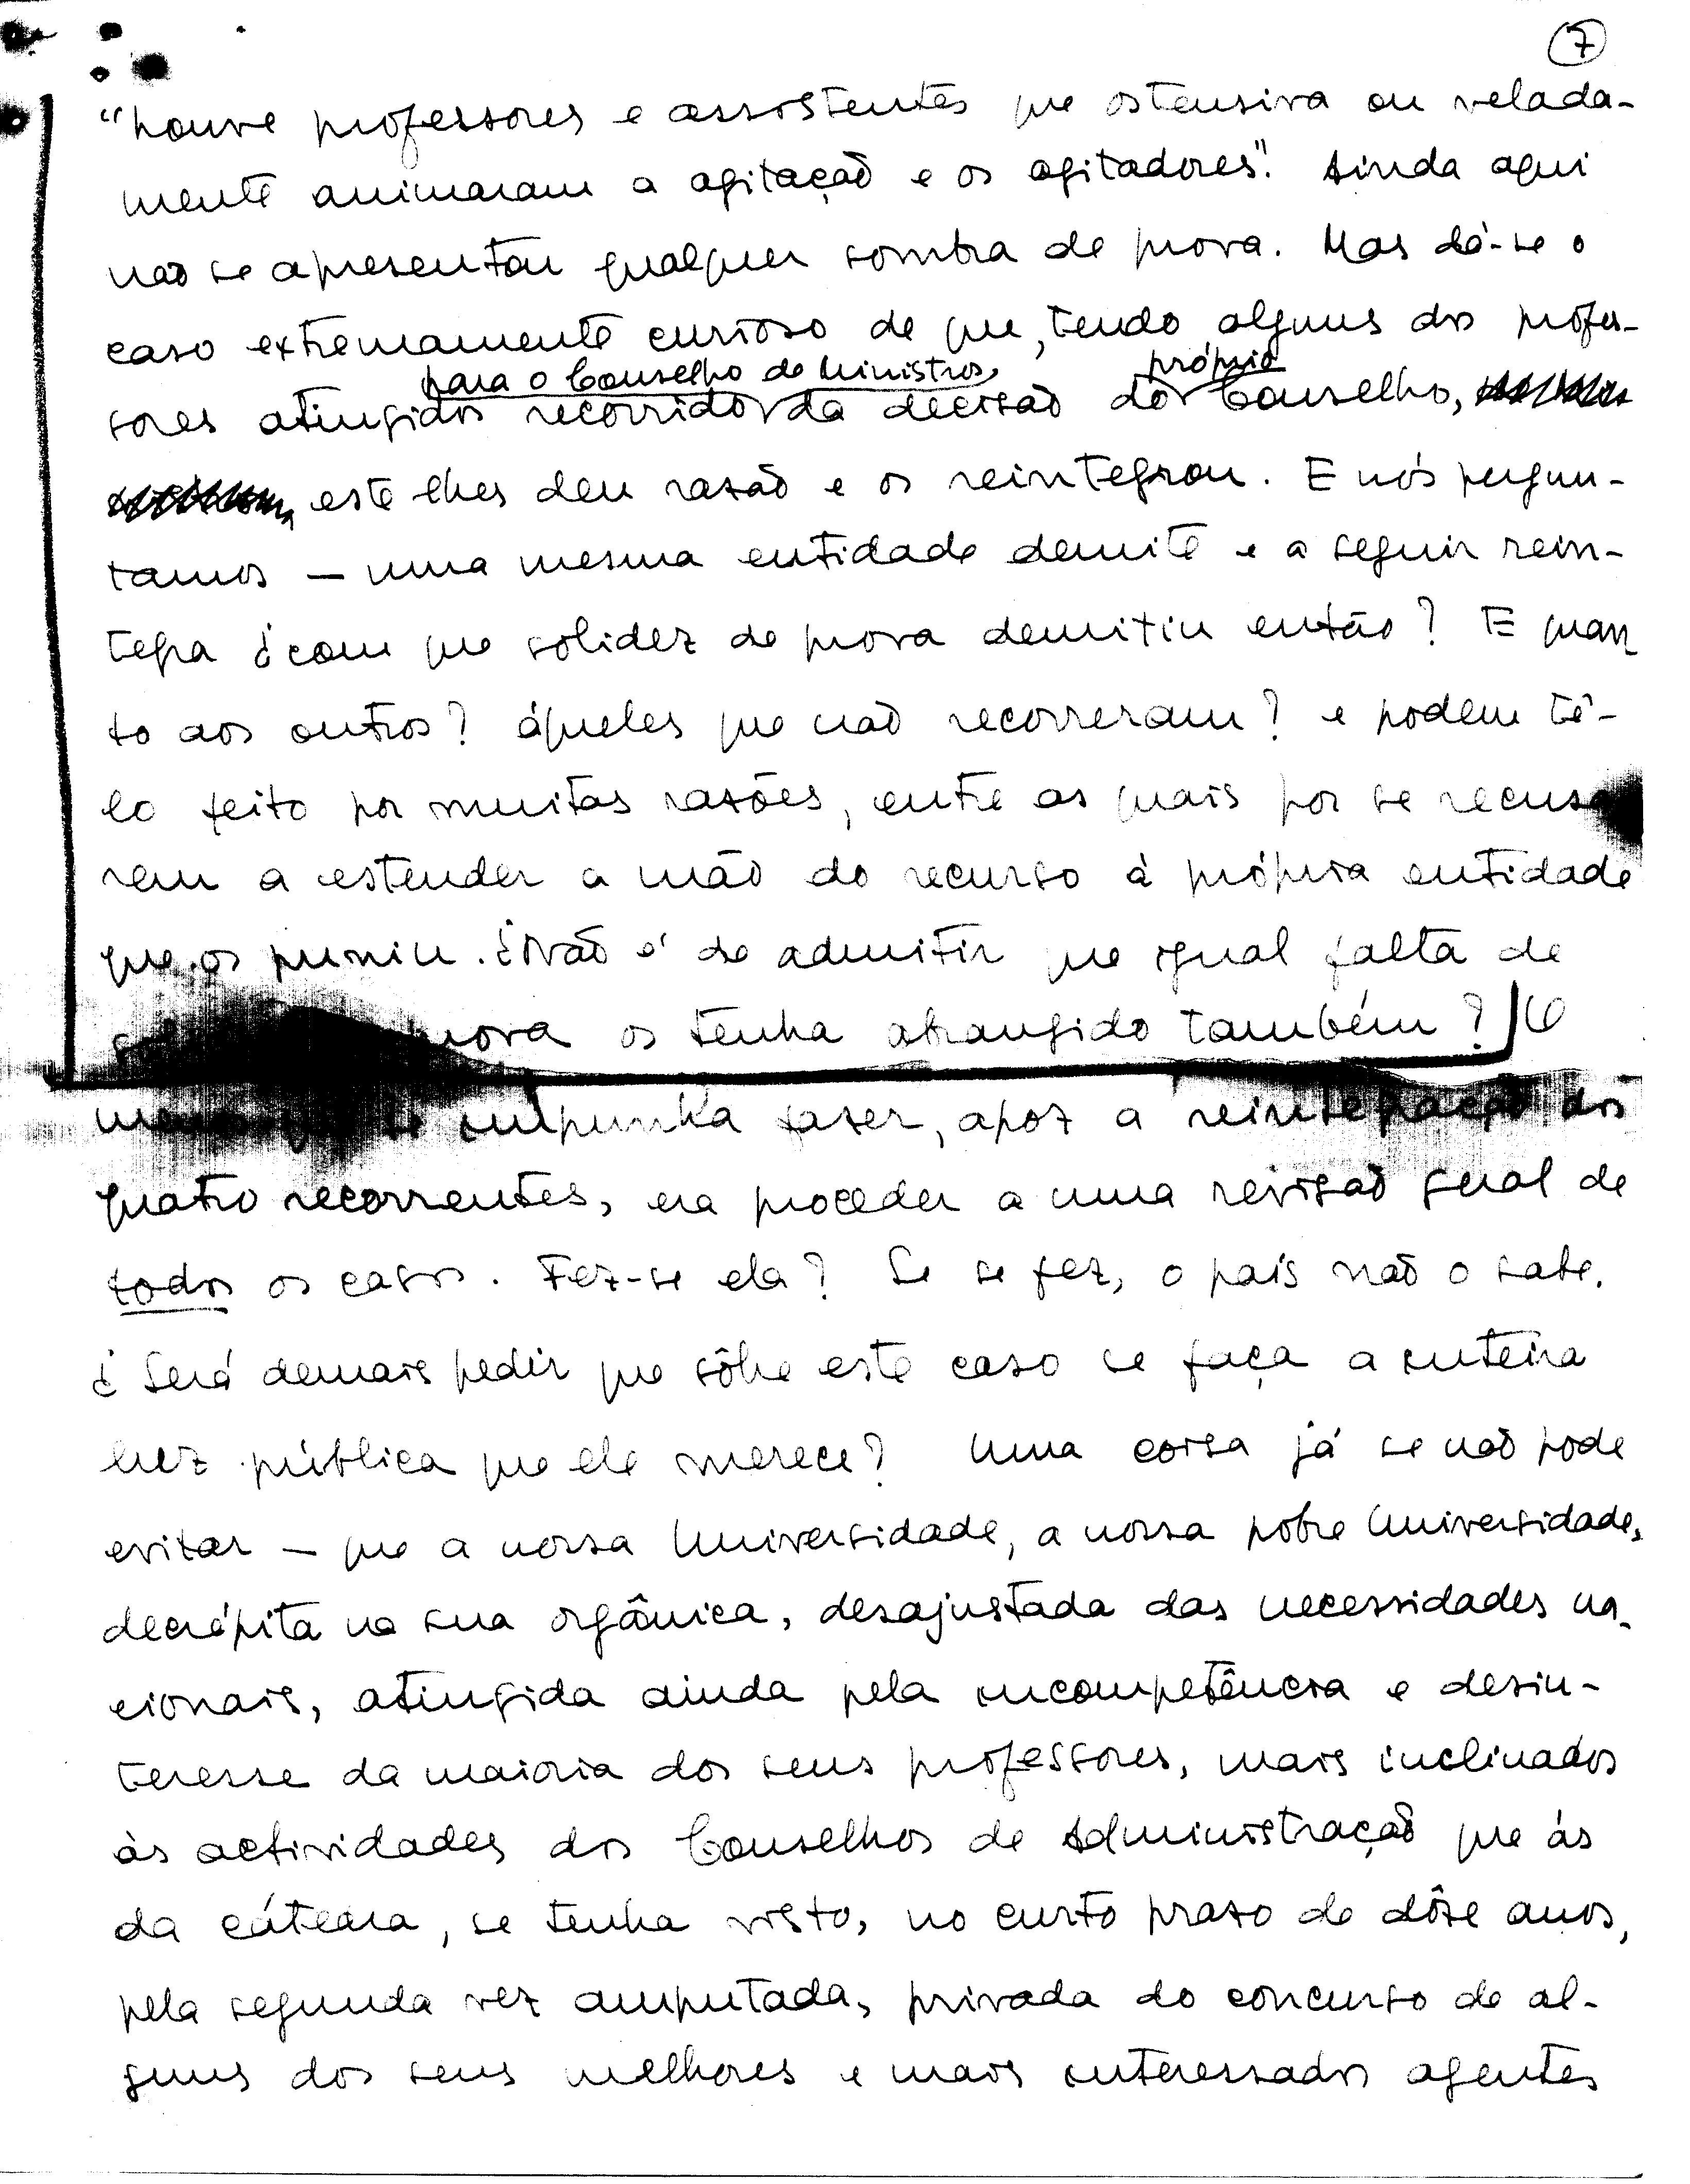 7
"houve professores e assistentes que ostensiva ou velada-
mente animaram a agitação e os agitadores". Ainda aqui
não se apresentou qualquer sombra de prova. Mas dá-se o
caso extremamente curioso de que, tendo alguns dos profes-
para o Conselho de Ministros, próprio
sores atingidos recorrido da decisão do Conselho,
este lhes deu razão e os reintegrou. E nós pergun-
tamos — uma mesma entidade demite e a seguir rein-
tegra ¿com que solidez de prova demitiu então? E quan
to aos outros? áqueles que não recorreram? e podem tê-
lo feito por muitas razões, entre as quais por se recusa
rem a estender a mão do recurso á própria entidade
que os puniu. ¿Não é de admitir que igual falta de
prova os tenha abrangido também? O
menos que se impunha fazer, apoz a reintegração dos
quatro recorrentes, era proceder a uma revisão geral de
todos os casos. Fez-se ela? Se se fez, o país não o sabe.
¿Será demais pedir que sôbre este caso se faça a inteira
luz pública que ele merece? Uma coisa já se não pode
evitar — que a nossa Universidade, a nossa pobre Universidade,
decrépita na sua orgânica, desajustada das necessidades na-
cionais, atingida ainda pela incompetência e desin-
teresse da maioria dos seus professores, mais inclinados
às actividades dos Conselhos de Administração que às
da cátedra, se tenha visto, no curto prazo de dôze anos,
pela segunda vez amputada, privada do concurso de al-
guns dos seus melhores e mais interessados agentes